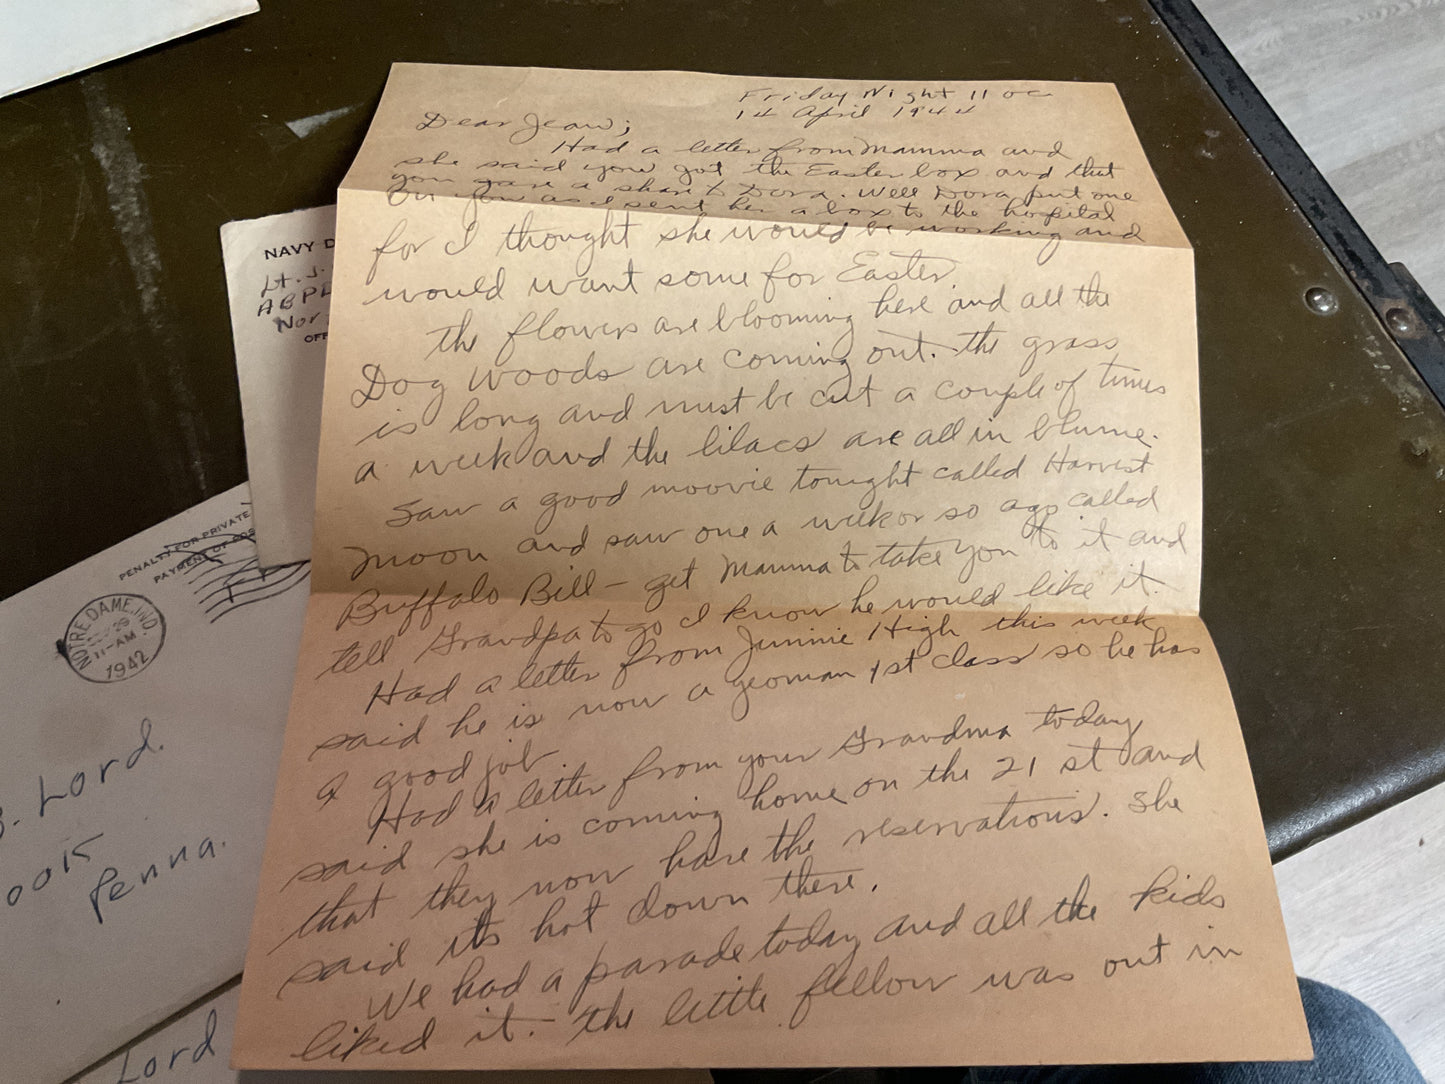 Friday Night 11 oc
14 April 1944
Dear Jean;
Had a letter from Mamma and
she said you got the Easter box and that
you gave a share to Dora. Well Dora put one
on you as I sent her a box to the hospital
for I thought she would be working and
would want some for Easter.
the flowers are blooming here and all the
Dog woods are coming out. the grass
is long and must be cut a couple of times
a week and the lilacs are all in blume.
Saw a good moovie tonight called Harvest
Moon and saw one a week or so ago called
Buffalo Bill - get Mamma to take you to it and
tell Grandpa to go I know he would like it.
Had a letter from Jimmie High this week
said he is now a yeoman 1st class so he has
a good job
Had a letter from your Grandma today
said she is coming home on the 21 st and
that they now have the reservations. She
said its hot down there.
We had a parade today and all the kids
liked it. - the little fellow was out in
NAVY D
Lt. J.
Nor
OFF
PENALTY FOR PRIVATE
PAYMENT OF POS
NOTRE DAME, IND.
29
11-AM
1942
Lord.
Penna.
Lord